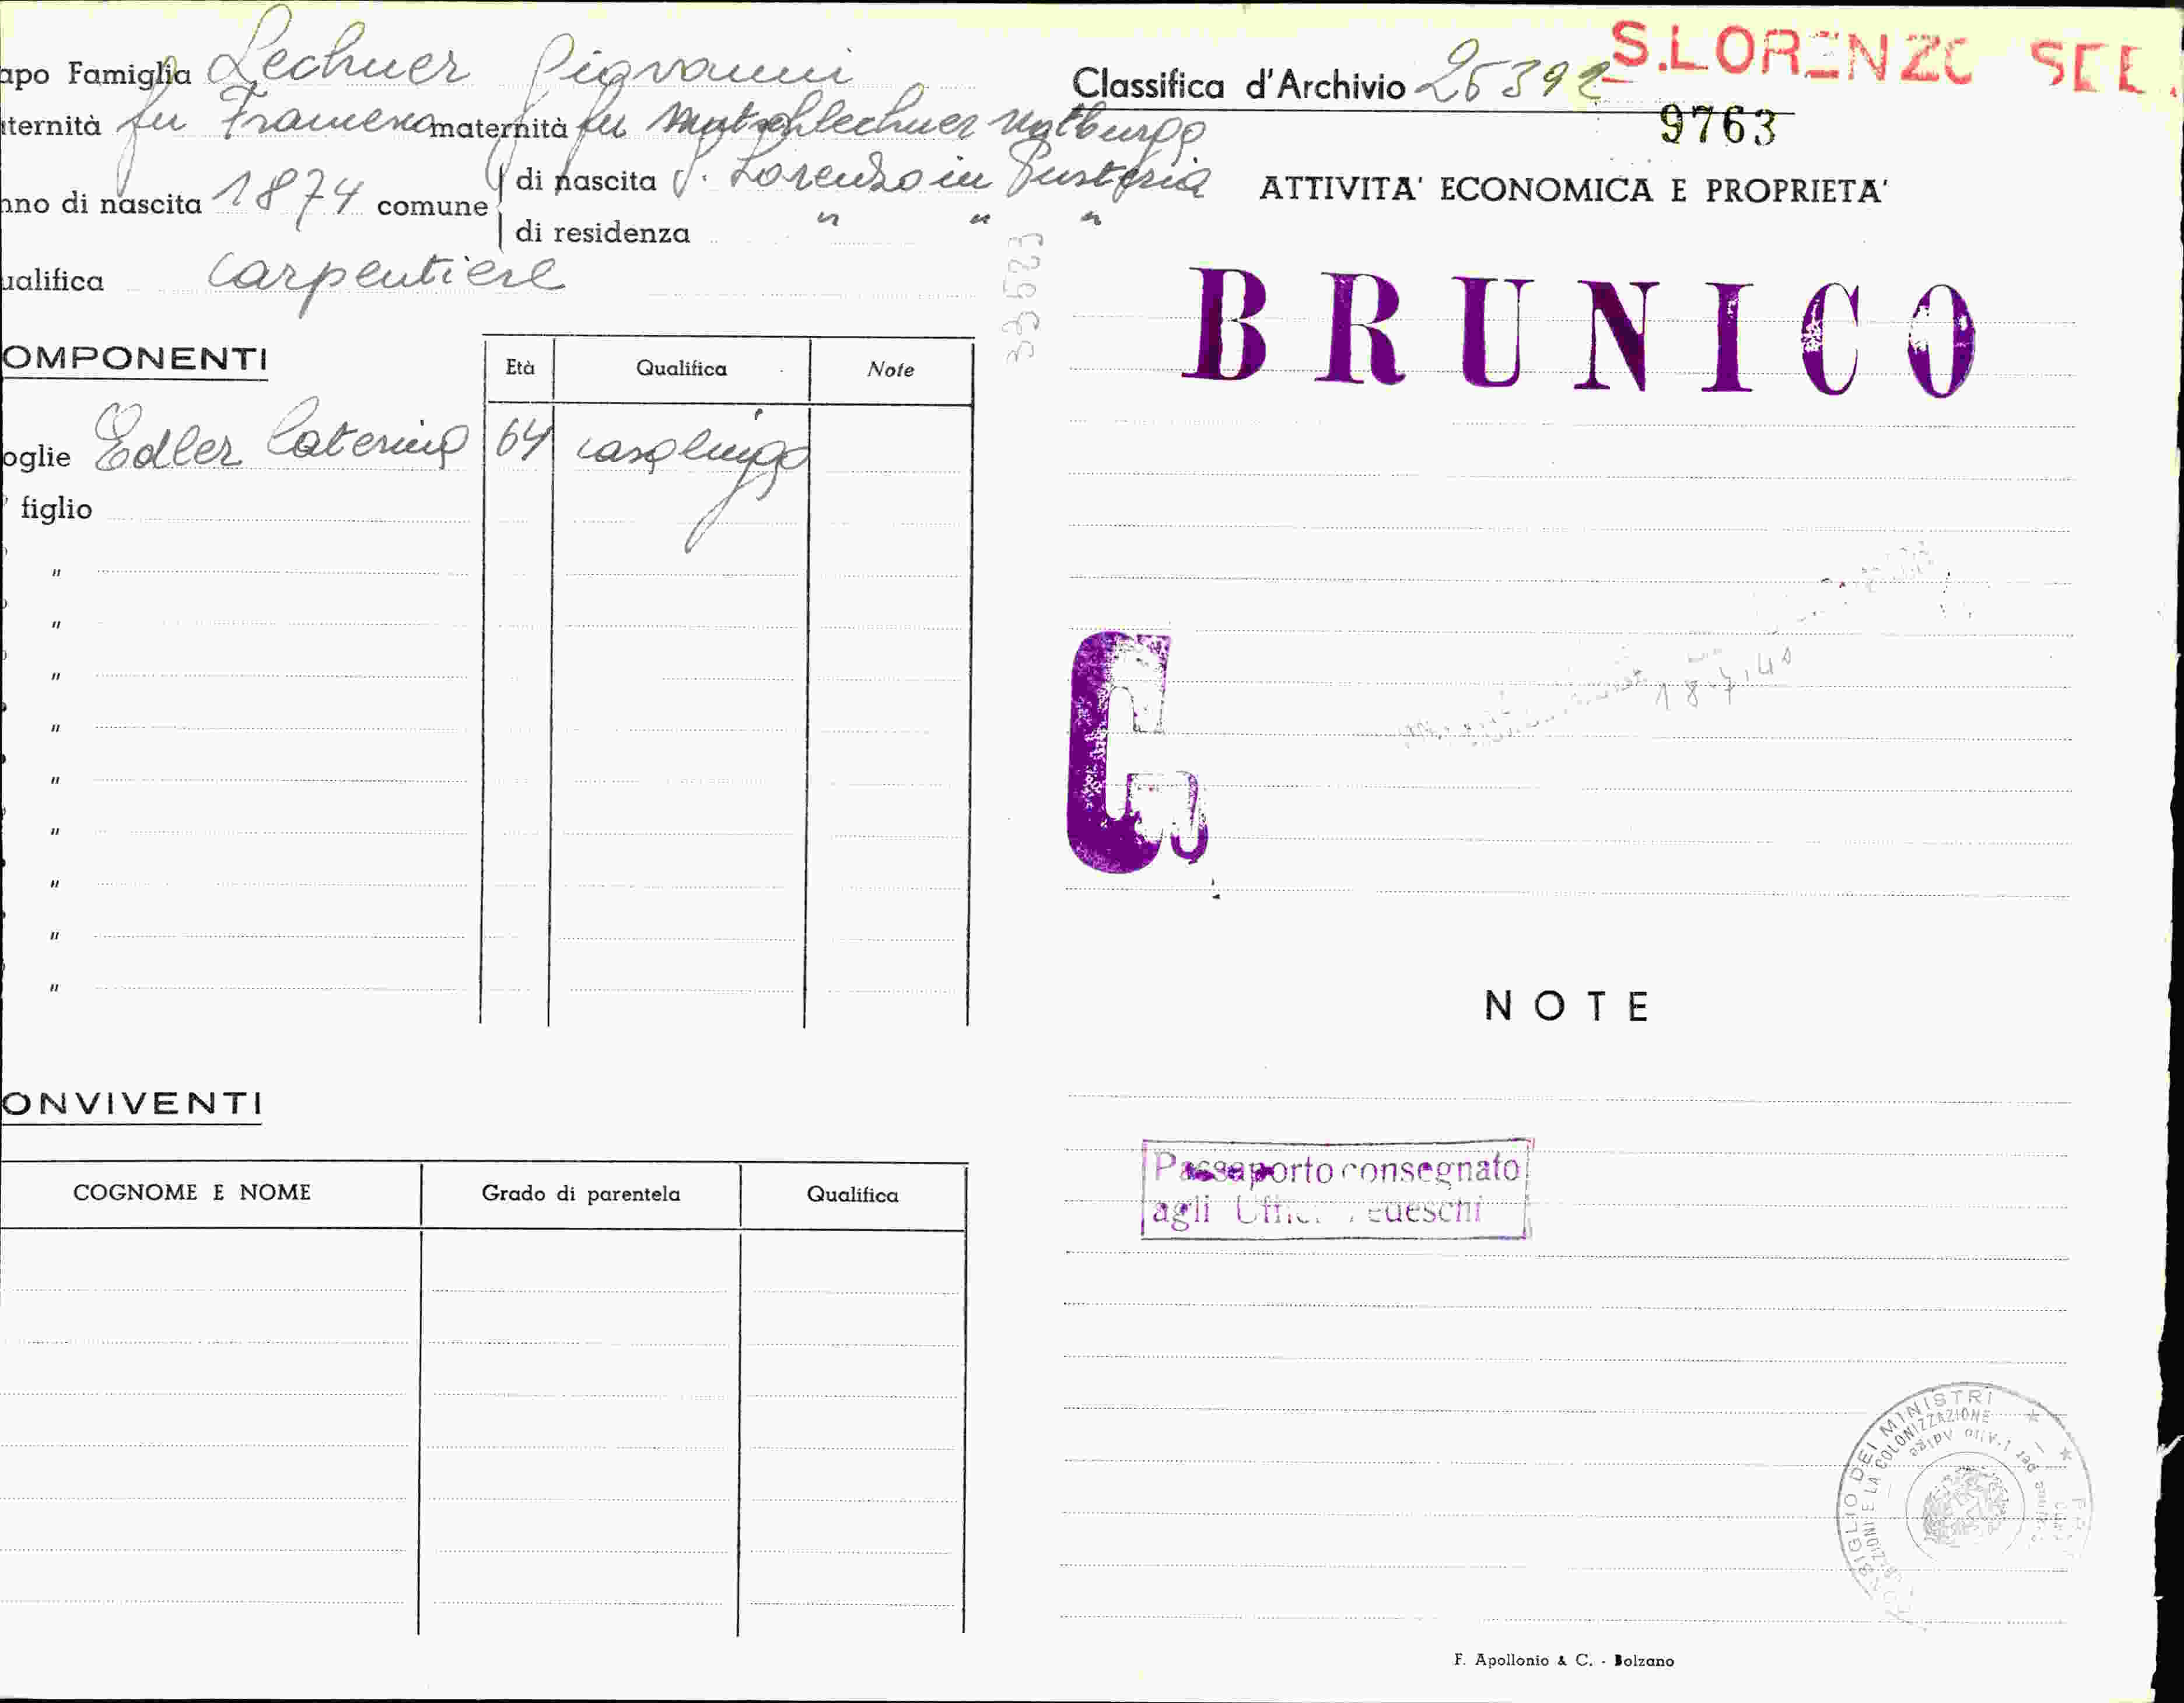 apo Famiglia Lechner Giovanni
ternità fu Francesco maternità fu Mutschlechner Notburga
nno di nascita 1874 comune di nascita S. Lorenzo in Pusteria
di residenza " " "
ualifica carpentiere
OMPONENTI
Età Qualifica Note
oglie Edler Caterina 64 casalinga
figlio
"
"
"
"
"
"
"
"
"
ONVIVENTI
COGNOME E NOME Grado di parentela Qualifica
335623
S.LORENZO SEE.
Classifica d'Archivio 25392
9763
ATTIVITA' ECONOMICA E PROPRIETA'
BRUNICO
G
18.7.40
NOTE
Passaporto consegnato
agli Uffici Tedeschi
DEI MINISTRI
E LA COLONIZZAZIONE
per l'Alto Adige
F. Apollonio & C. - Bolzano